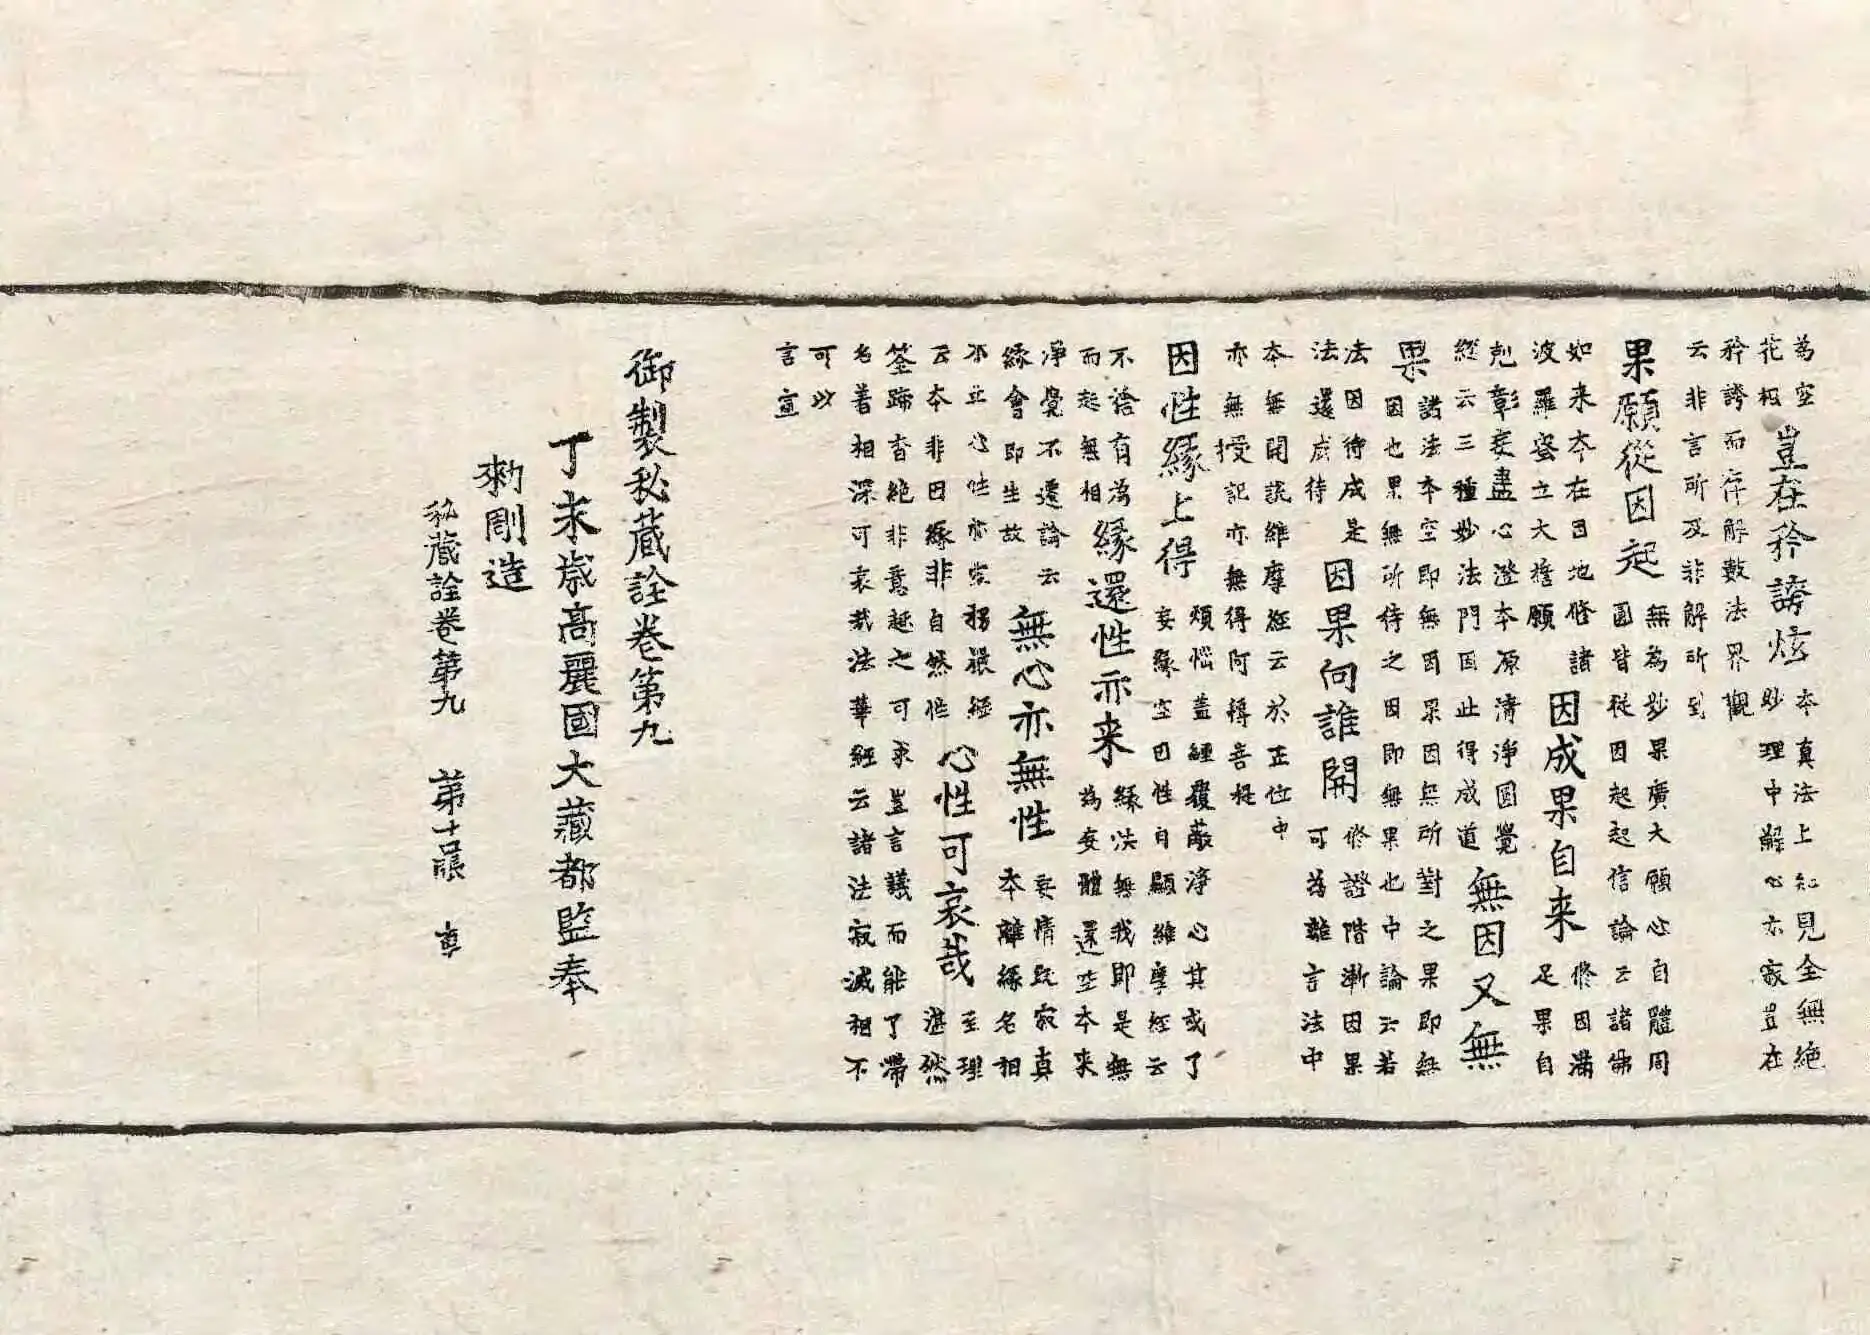 為空
花相
豈在矜誇炫
本真法上知見全無絶
妙理中解心亦寂豈在
矜誇而存解數法界觀
云非言所及非解所到
果願從因起
無為妙果廣大願心自體周
圓皆從因起起信論云諸佛
如来本在因地修諸
波羅蜜立大擔願
因成果自来
修因滿
足果自
剋彰妄盡心澄本原清淨圓覺
經云三種妙法門因止得成道
無因又無
果
諸法本空即無因果因無所對之果即無
因也果無所待之因即無果也中論云若
法因待成是
法還成待
因果向誰開
修證階漸因果
可為離言法中
本無開説維摩經云於正位中
亦無授記亦無得阿耨菩提
因性緣上得
煩惱蓋纏覆蔽淨心其或了
妄緣空因性自顯維摩經云
不捨有為
而起無相
緣還性亦来
緣决無我即是無
為妄體還空本来
淨覺不遷論云
緣會即生故
無心亦無性
妄情既寂真
本離緣名相
不立心性亦忘楞嚴經
云本非因緣非自然性
心性可哀哉
至理
湛然
筌蹄杳絶非意趣之可求豈言議而能了帶
名著相深可哀哉法華經云諸法寂滅相不
可以
言宣
御製秘藏詮卷第九
丁未歲高麗國大藏都監奉
勑彫造
秘藏詮卷第九 第十四張 車